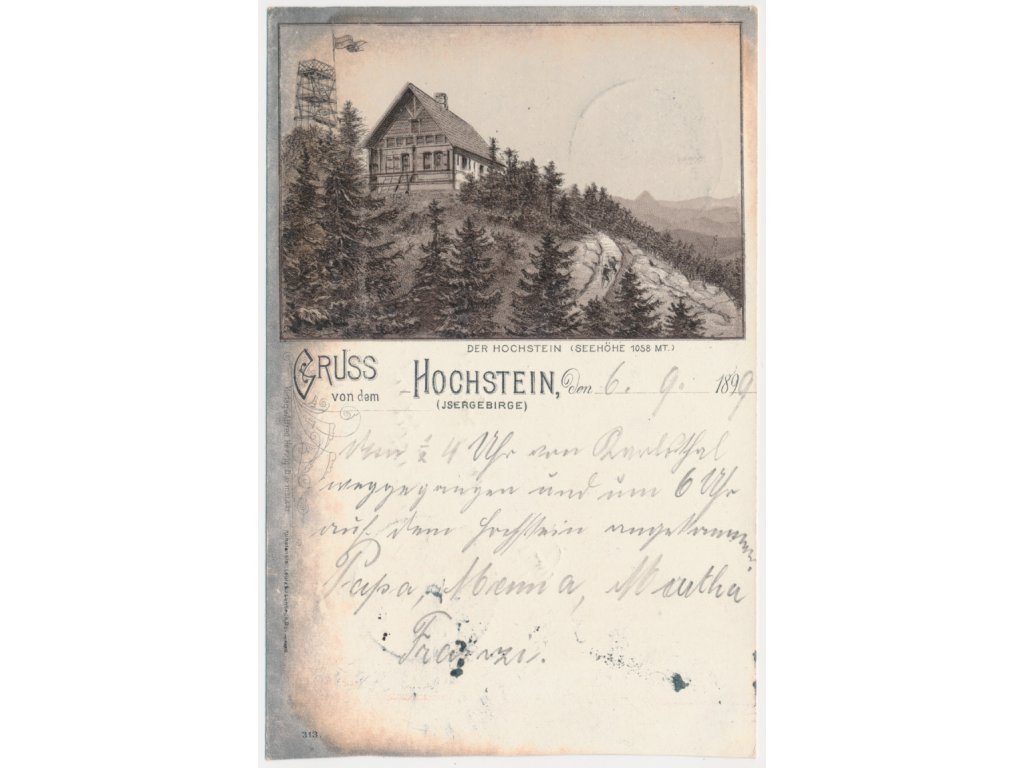 DER HOCHSTEIN (SEEHÖHE 1058 MT.)
GRUSS
von dem
HOCHSTEIN, den 6. 9. 1899
(JSERGEBIRGE)
½ 4 Uhr von Karlsthal
weggegangen und um 6 Uhr
auf dem Hochstein angekommen.
Papa, Mama, Martha
Franzi.
313.